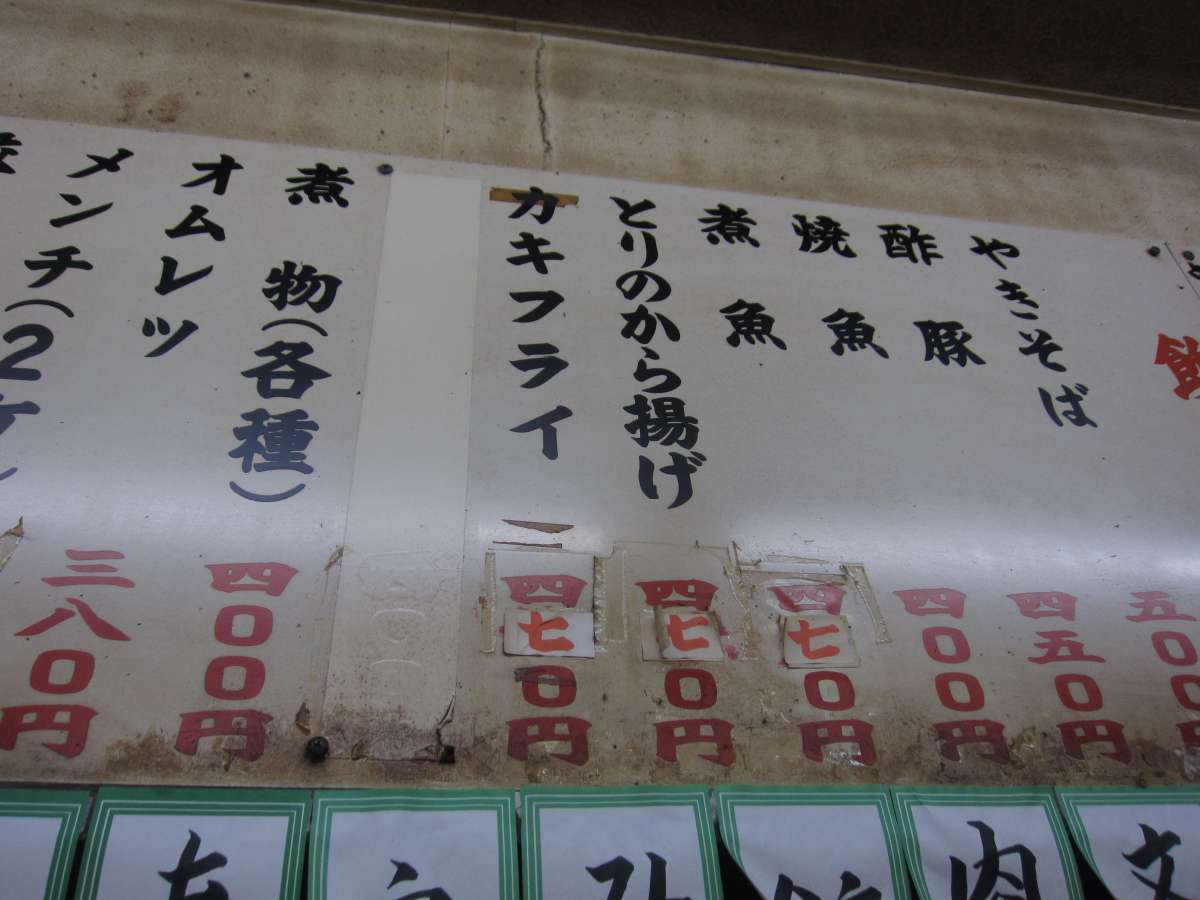 やきそば 五〇〇円
酢豚 四五〇円
焼魚 四〇〇円
煮魚 四七〇円
とりのから揚げ 四七〇円
カキフライ 四七〇円
煮物(各種) 四〇〇円
オムレツ 三八〇円
メンチ(2ケ)
肉